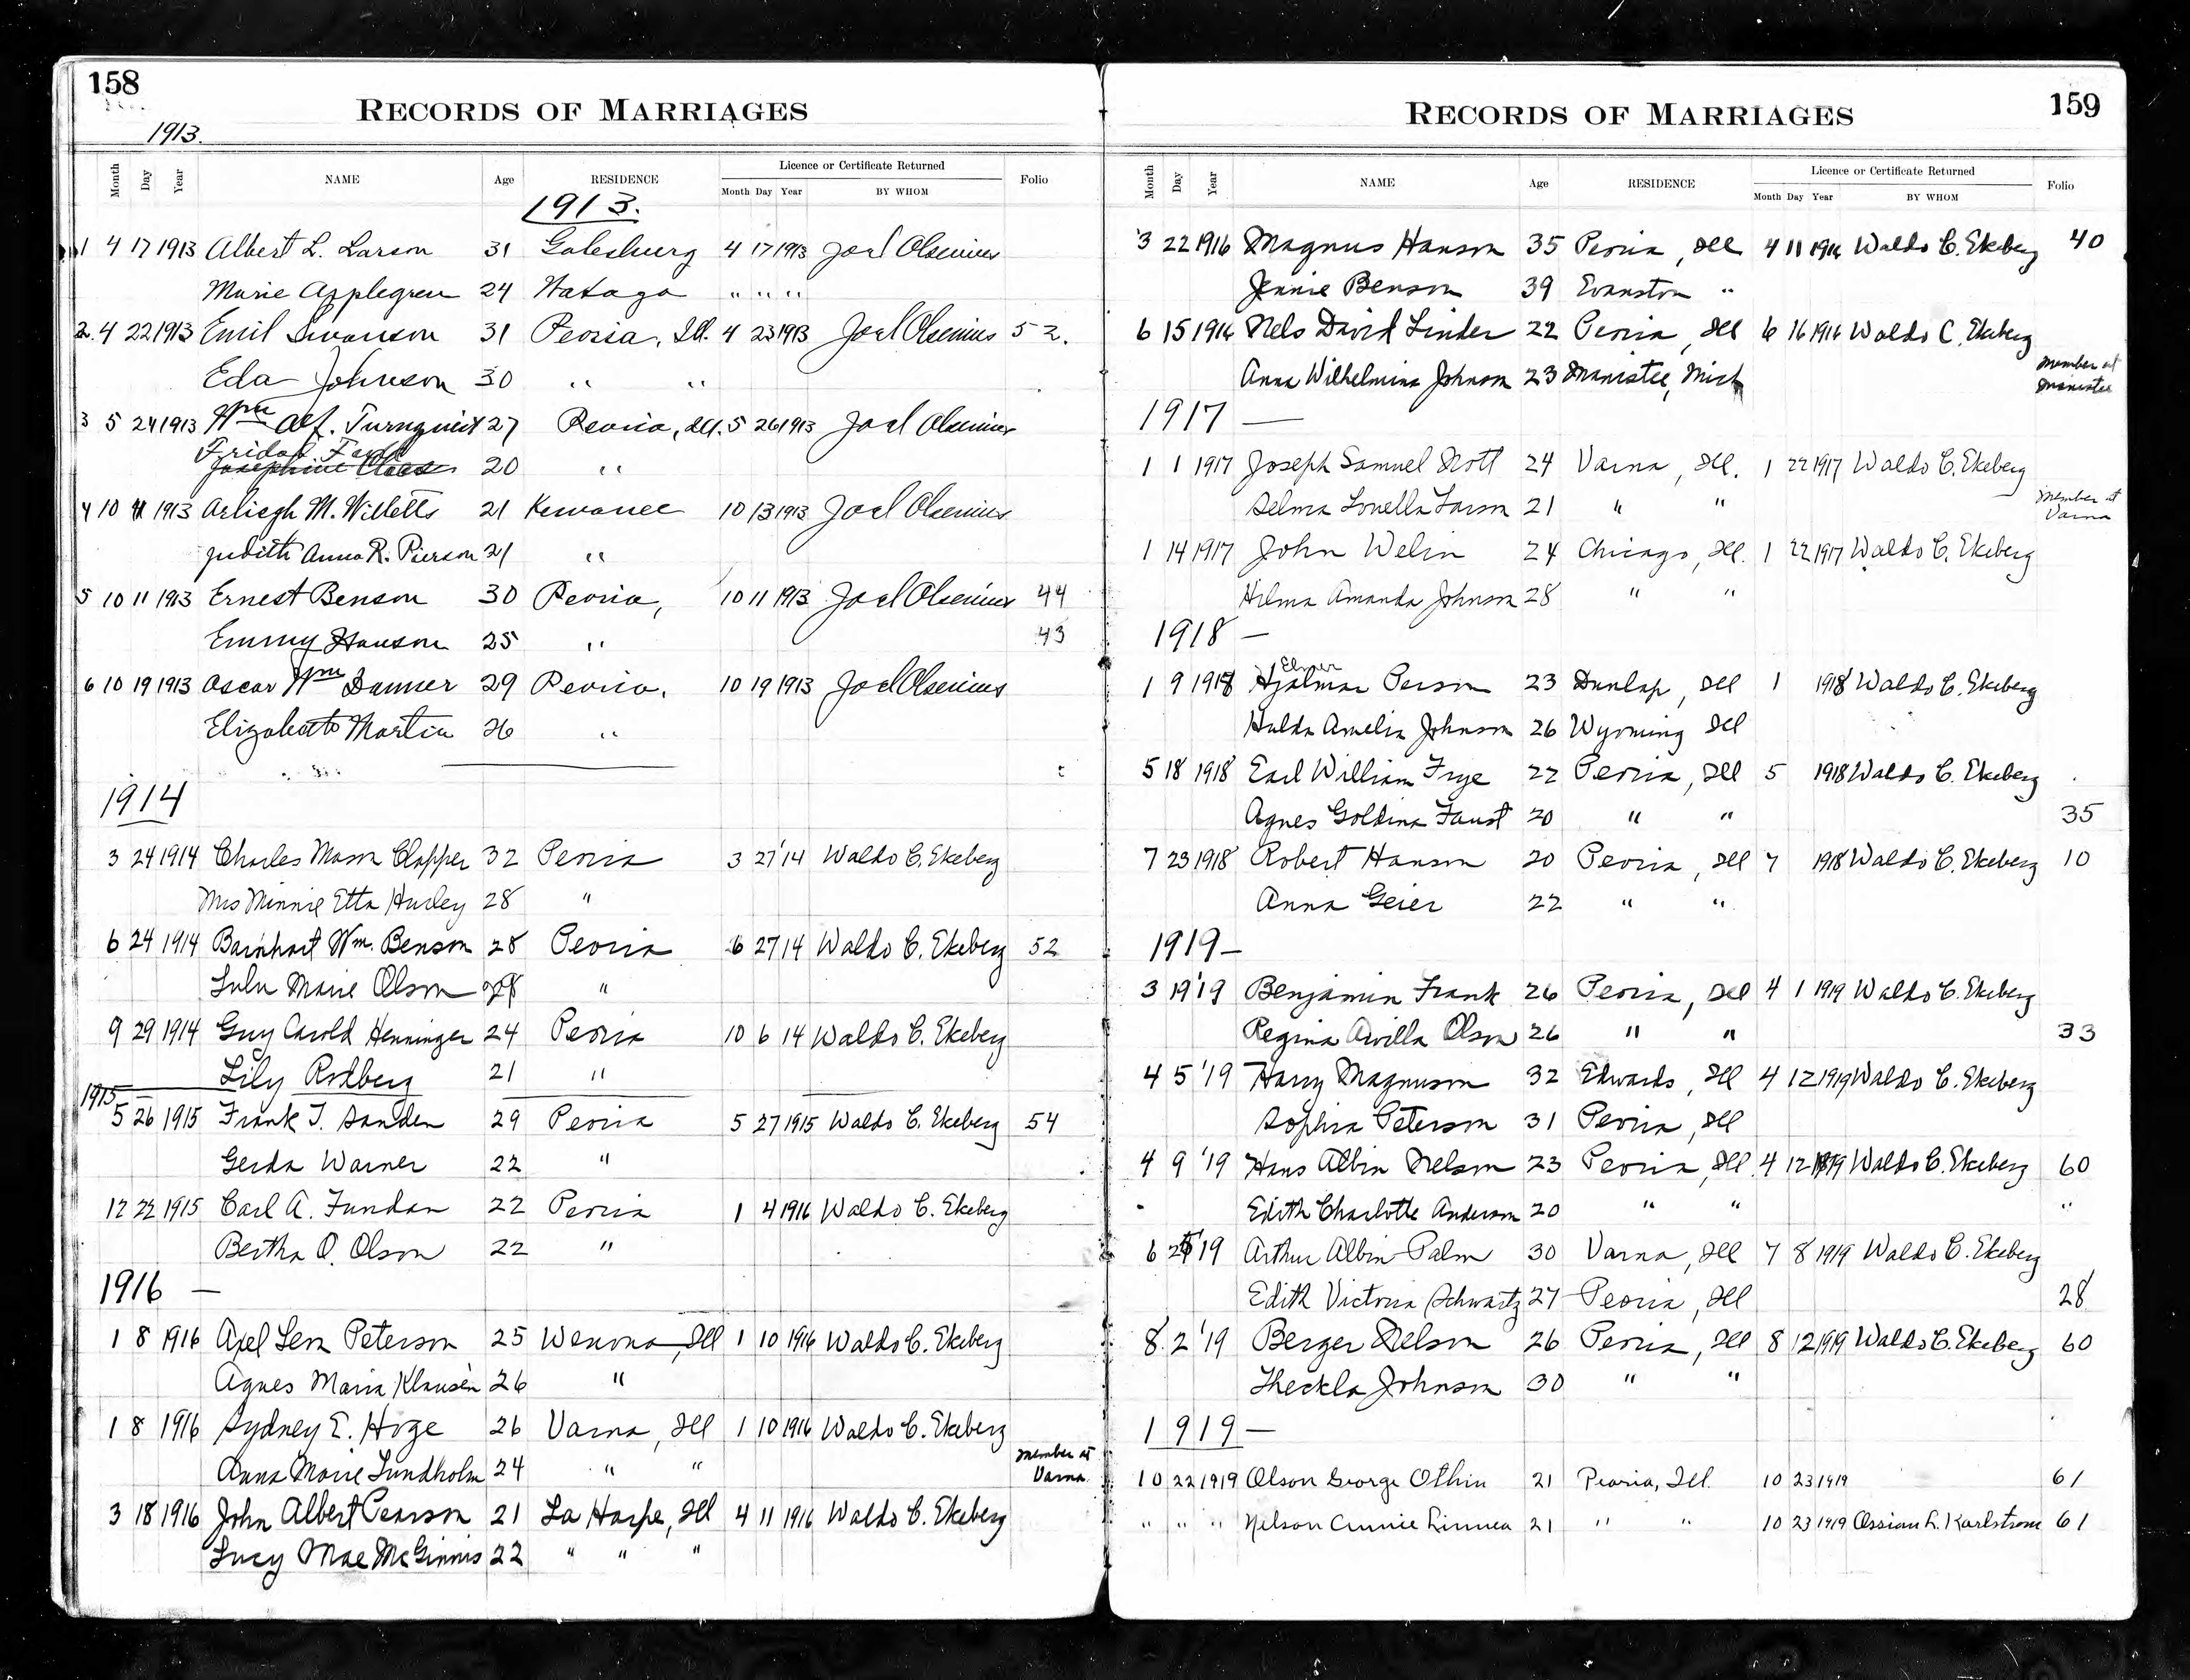 158
RECORDS OF MARRIAGES
1913.
Month Day Year NAME Age RESIDENCE Licence or Certificate Returned Month Day Year BY WHOM Folio
1913.
1 4 17 1913 Albert L. Larson 31 Galesburg 4 17 1913 Joel Olsenius
Marie Applegren 24 Wataga " " " "
2. 4 22 1913 Emil Swanson 31 Peoria, Ill. 4 23 1913 Joel Olsenius 52.
Eda Johnson 30 " "
3 5 24 1913 Wm Alf. Turnquist 27 Peoria, Ill. 5 26 1913 Joel Olsenius
Frida
Josephine 20 "
4 10 11 1913 Arliegh M. Willetts 21 Kewanee 10 13 1913 Joel Olsenius
Judith Anna R. Pierson 21 "
5 10 11 1913 Ernest Benson 30 Peoria, 10 11 1913 Joel Olsenius 44
Emmy Hanson 25 " 43
6 10 19 1913 Oscar Wm Danner 29 Peoria, 10 19 1913 Joel Olsenius
Elizabeth Martin 26 "
1914
3 24 1914 Charles Mason Clapper 32 Peoria 3 27 '14 Waldo C. Ekeberg
Mrs Minnie Etta Hurley 28 "
6 24 1914 Barnhart Wm. Benson 28 Peoria 6 27 14 Waldo C. Ekeberg 52
Lulu Marie Olson 28 "
9 29 1914 Guy Carold Henninger 24 Peoria 10 6 14 Waldo C. Ekeberg
Lily Rodberg 21 "
1915
5 26 1915 Frank T. Sanden 29 Peoria 5 27 1915 Waldo C. Ekeberg 54
Gerda Warner 22 "
12 22 1915 Carl A. Fundan 22 Peoria 1 4 1916 Waldo C. Ekeberg
Bertha O. Olson 22 "
1916 —
1 8 1916 Axel Leon Peterson 25 Wenona, Ill 1 10 1916 Waldo C. Ekeberg
Agnes Maria Klausen 26 "
1 8 1916 Sydney E. Hoge 26 Varna, Ill 1 10 1916 Waldo C. Ekeberg
Anna Marie Lundholm 24 " " Member at Varna
3 18 1916 John Albert Pearson 21 La Harpe, Ill 4 11 1916 Waldo C. Ekeberg
Lucy Mae McGinnis 22 " " "
159
RECORDS OF MARRIAGES
Month Day Year NAME Age RESIDENCE Licence or Certificate Returned Month Day Year BY WHOM Folio
3 22 1916 Magnus Hanson 35 Peoria, Ill 4 11 1916 Waldo C. Ekeberg 40
Jennie Benson 39 Evanston "
6 15 1916 Nels David Linder 22 Peoria, Ill 6 16 1916 Waldo C. Ekeberg
Anna Wilhelmina Johnson 23 Manistee, Mich Member at Manistee
1917 —
1 1 1917 Joseph Samuel Nott 24 Varna, Ill. 1 22 1917 Waldo C. Ekeberg
Selma Lonella Larson 21 " " Member at Varna
1 14 1917 John Welin 24 Chicago, Ill. 1 22 1917 Waldo C. Ekeberg
Hilma Amanda Johnson 28 " "
1918 —
Elmer
1 9 1918 Hjalmar Person 23 Dunlap, Ill 1 1918 Waldo C. Ekeberg
Hulda Amelia Johnson 26 Wyoming Ill
5 18 1918 Earl William Frye 22 Peoria, Ill 5 1918 Waldo C. Ekeberg
Agnes Goldina Faust 20 " " 35
7 23 1918 Robert Hanson 20 Peoria, Ill 7 1918 Waldo C. Ekeberg 10
Anna Geier 22 " "
1919 —
3 19 '19 Benjamin Frank 26 Peoria, Ill 4 1 1919 Waldo C. Ekeberg
Regina Avilla Olson 26 " " 33
4 5 '19 Harry Magnuson 32 Edwards, Ill 4 12 1919 Waldo C. Ekeberg
Sophia Peterson 31 Peoria, Ill
4 9 '19 Hans Albin Nelson 23 Peoria, Ill. 4 12 1919 Waldo C. Ekeberg 60
Edith Charlotte Anderson 20 " " "
6 25 '19 Arthur Albin Palm 30 Varna, Ill 7 8 1919 Waldo C. Ekeberg
Edith Victoria Schwartz 27 Peoria, Ill 28
8 2 '19 Berger Nelson 26 Peoria, Ill 8 12 1919 Waldo C. Ekeberg 60
Theckla Johnson 30 " "
1919 —
10 22 1919 Olson George Othin 21 Peoria, Ill. 10 23 1919 61
" " " Nelson Annie Linnea 21 " " 10 23 1919 Ossian L. Karlstrom 61